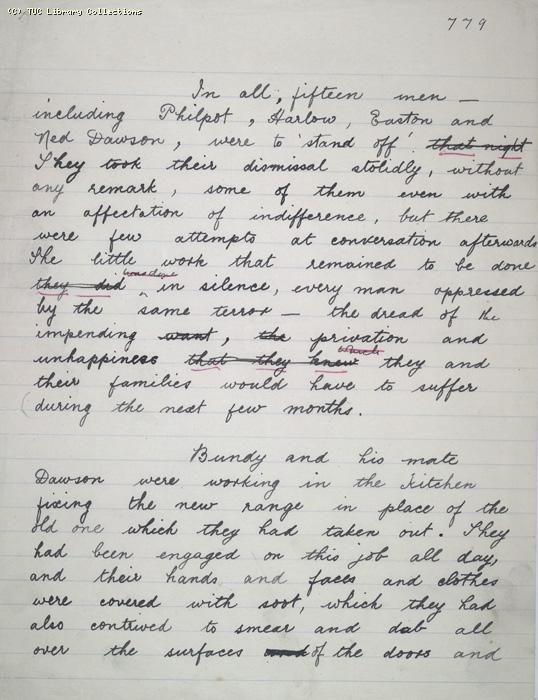 (C) TUC Library Collections
779
In all, fifteen men —
including Philpot, Harlow, Easton and
Ned Dawson, were to 'stand off' that night
They took their dismissal stolidly, without
any remark, some of them even with
an affectation of indifference, but there
were few attempts at conversation afterwards
The little work that remained to be done
was done
they did in silence, every man oppressed
by the same terror — the dread of the
impending want, the privation and
which
unhappiness that they knew they and
their families would have to suffer
(during the next few months.
Bundy and his mate
Dawson were working in the kitchen
fixing the new range in place of the
old one which they had taken out. They
had been engaged on this job all day,
and their hands and faces and clothes
were covered with soot, which they had
also contrived to smear and dab all
over the surfaces of the doors and